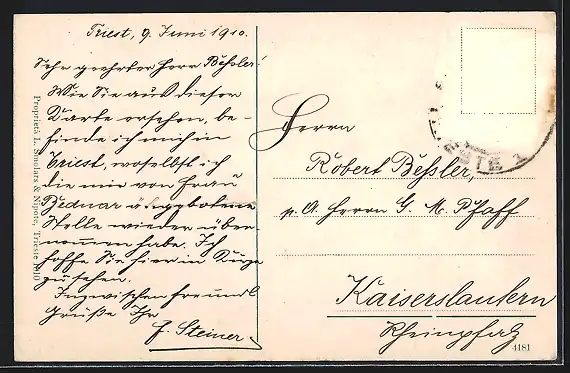 Triest, 9. Juni 1910.
Sehr geehrter Herr Beßler!
Wie Sie aus dieser
Karte ersehen, be-
finde ich mich in
Triest, woselbst ich
die mir von Frau
Bednar angebotene
Stelle wieder über-
nommen habe. Ich
hoffe Sie hier in Kürze
zu sehen.
Inzwischen freundl.
Grüße Ihr
F. Steiner
Proprietà L. Smolars & Nipote, Trieste 1910
Herrn
Robert Beßler,
p. A. Herrn G. M. Pfaff
Kaiserslautern
Rheinpfalz
4181